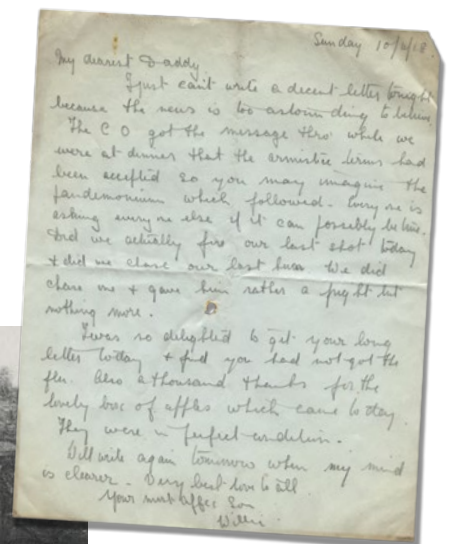 Sunday 10/11/18.
My dearest Daddy
I just can't write a decent letter tonight
because the news is too astounding to believe.
The C O got the message thro' while we
were at dinner that the armistice terms had
been accepted so you may imagine the
pandemonium which followed. Every one is
asking everyone else if it can possibly be true.
Did we actually fire our last shot today
& did we chase our last Hun. We did
chase one & gave him rather a fright but
nothing more.
I was so delighted to get your long
letter today & find you had not got the
flu. Also a thousand thanks for the
lovely box of apples which came today.
They were in perfect condition.
Will write again tomorrow when my mind
is clearer. Very best love to all
Your most affec Son
Willie